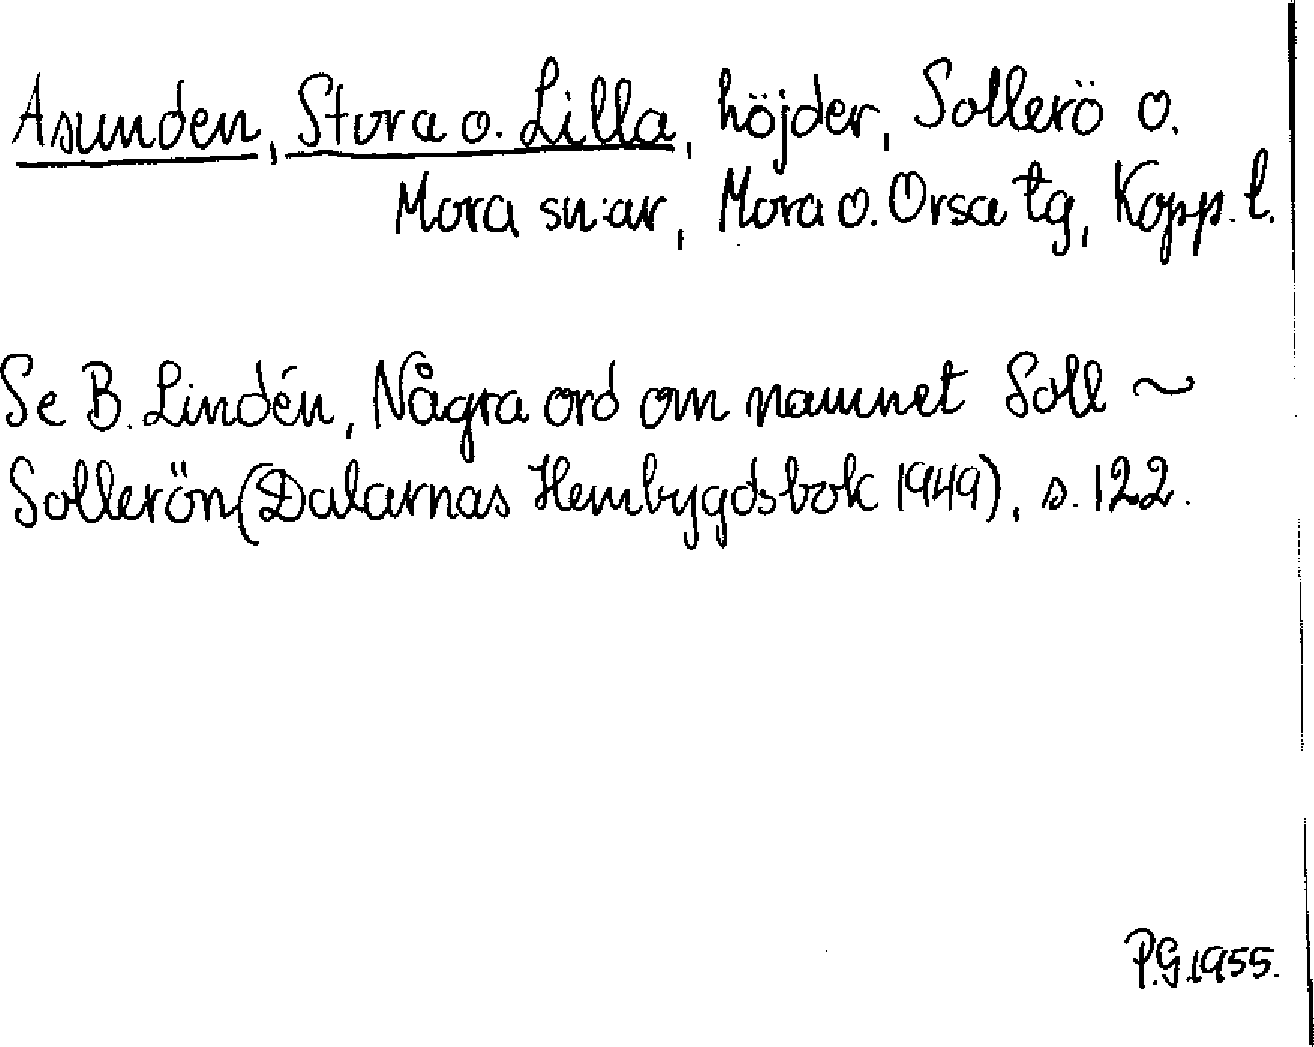 Asunden, Stora o. Lilla, höjder, Sollerö o.
Mora sn:ar, Mora o. Orsa tg, Kopp. l.
Se B. Lindén, Några ord om namnet Soll ~
Sollerön (Dalarnas Hembygdsbok 1949), s. 122.
P.G. 1955.